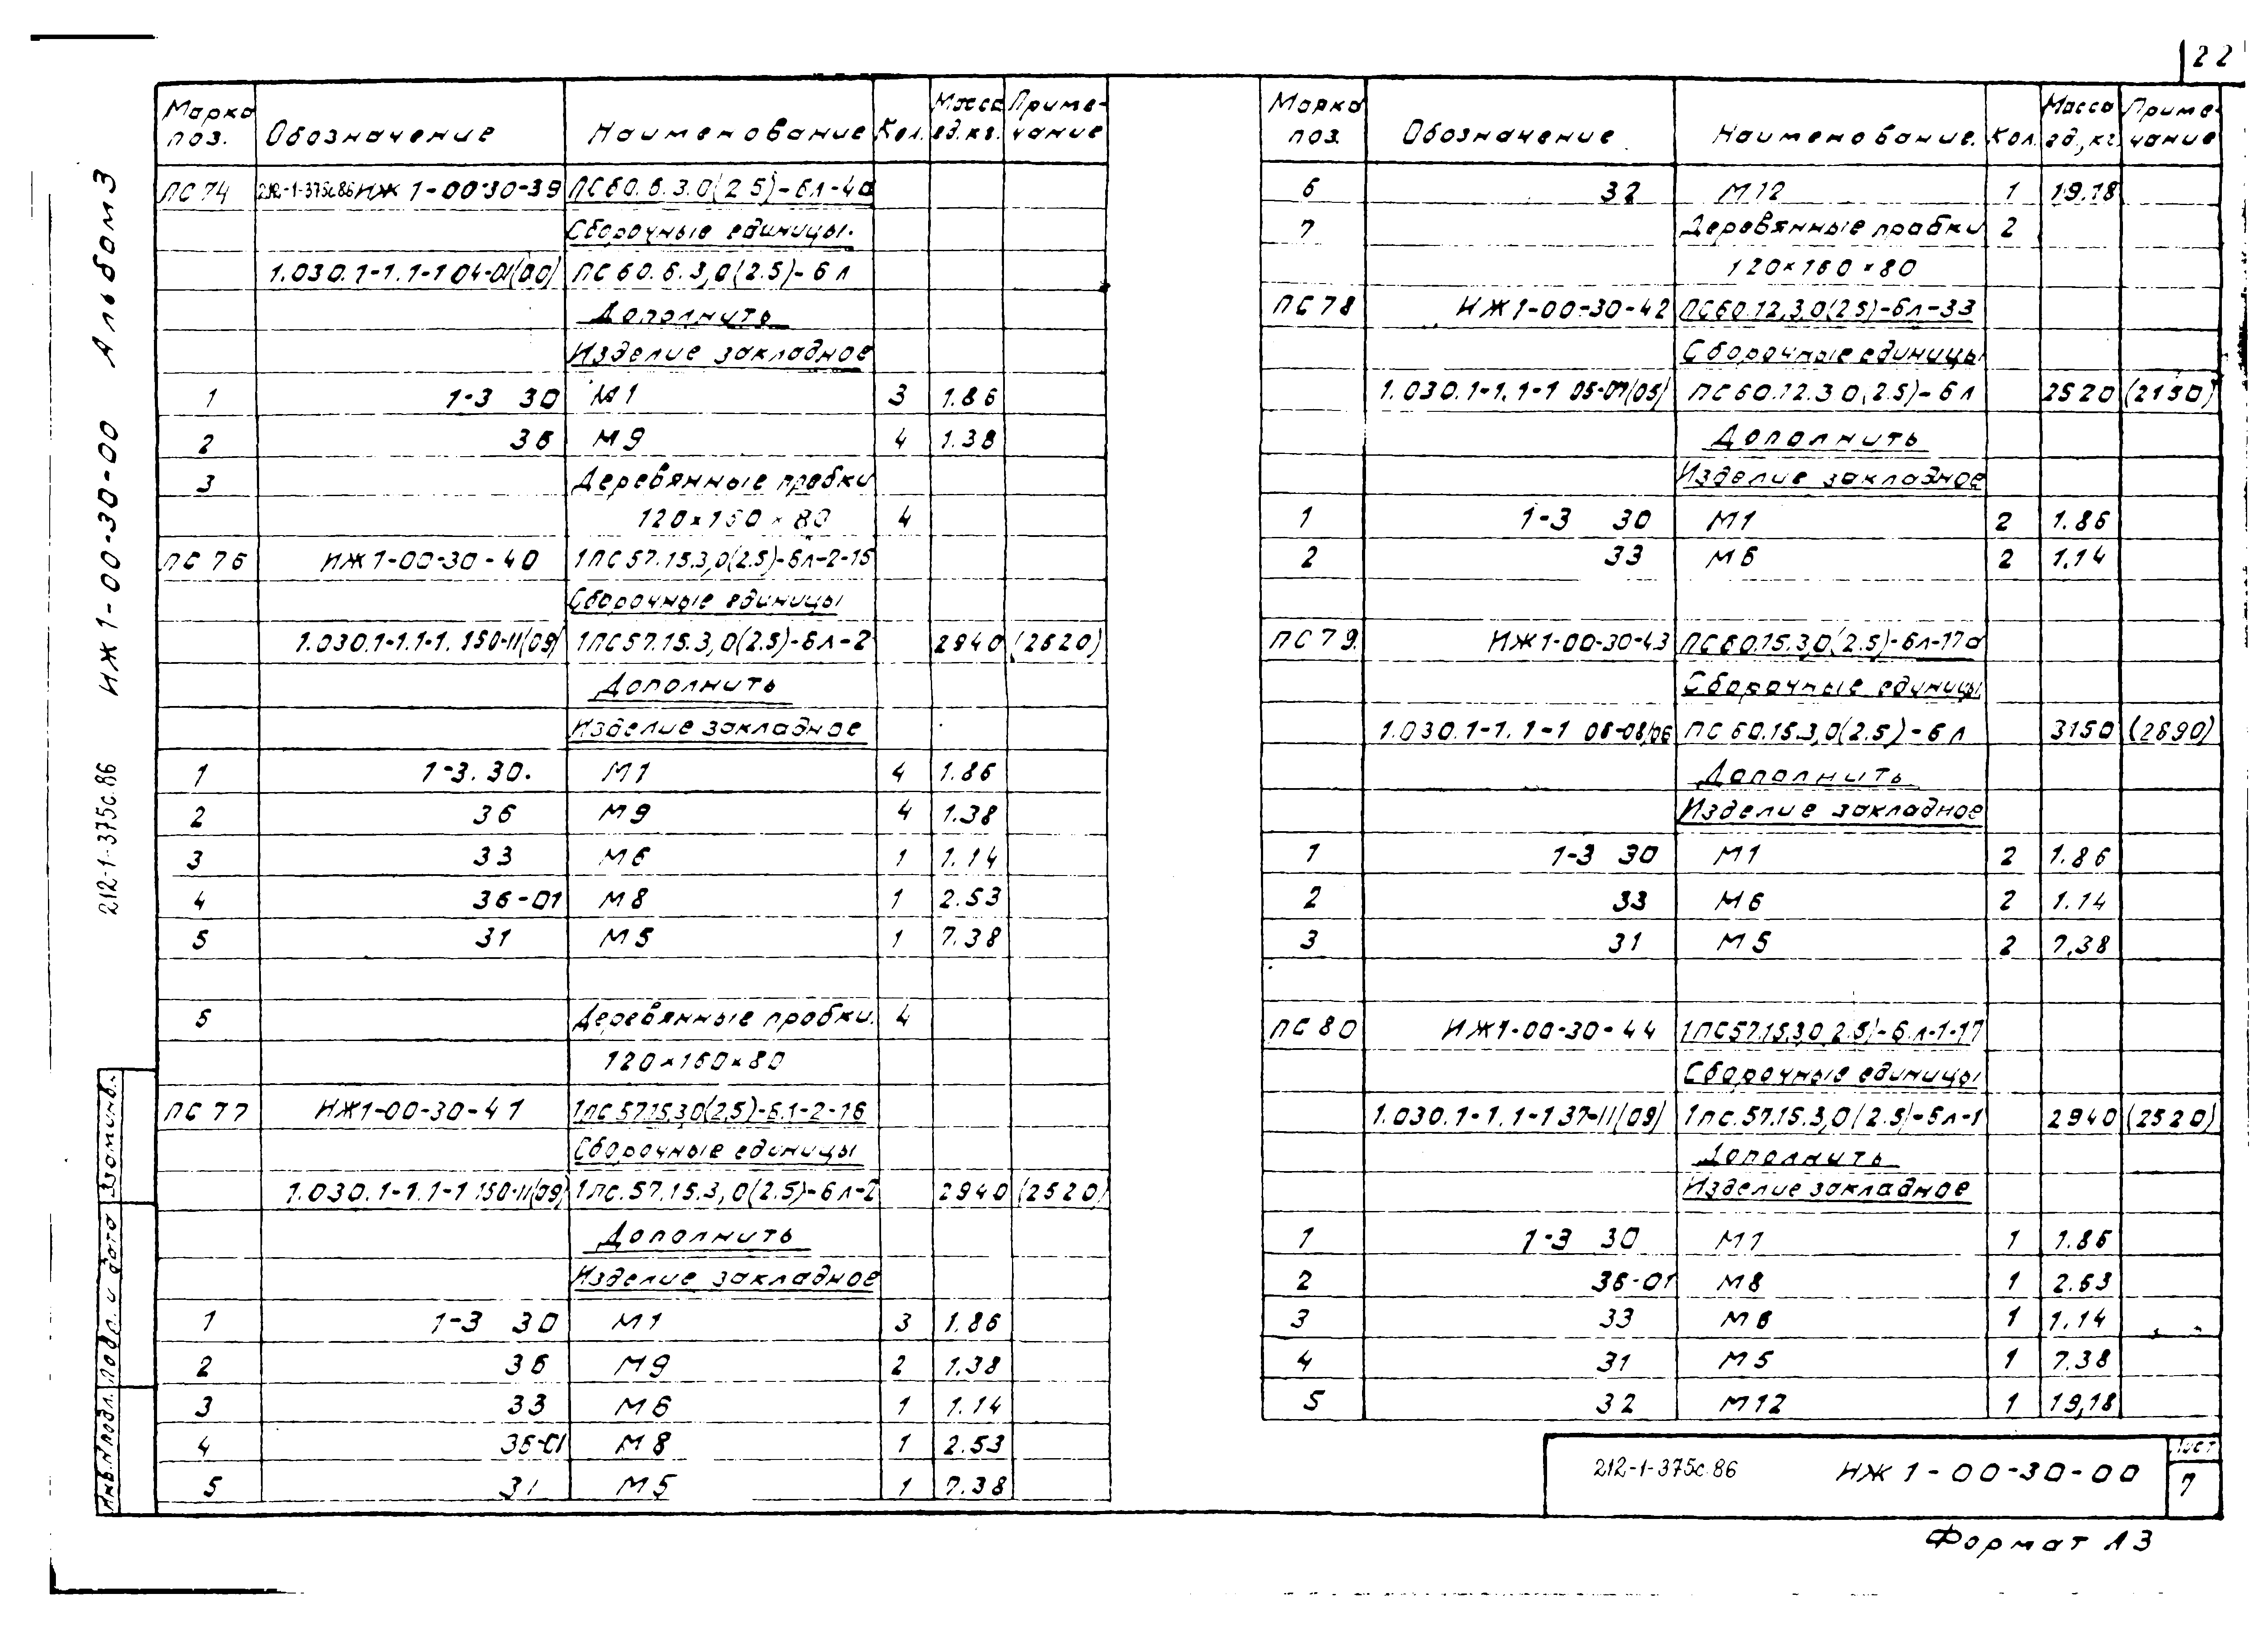 22
Марка поз. Обозначение Наименование Кол. Масса ед.кг. Примечание
ПС 74 212-1-375с.86 ИЖ 1-00-30-39 ПС 60.6.3.0(2.5)-6л-4а
Сборочные единицы.
1.030.1-1.1-1 04-01(00) ПС 60.6.3,0(2.5)-6л
Дополнить
Изделие закладное
1 1-3 30 М1 3 1.86
2 36 М9 4 1.38
3 Деревянные пробки
120×160×80 4
ПС 76 ИЖ1-00-30-40 1ПС 57.15.3,0(2.5)-6л-2-15
Сборочные единицы
1.030.1-1.1-1. 150-11(09) 1ПС 57.15.3,0(2.5)-6л-2 2940 (2520)
Дополнить
Изделие закладное
1 1-3.30. М1 4 1.86
2 36 М9 4 1.38
3 33 М6 1 1.14
4 36-01 М8 1 2.53
5 31 М5 1 7.38
6 Деревянные пробки. 4
120×160×80
ПС 77 ИЖ1-00-30-41 1ПС.57.15.3,0(2,5)-6л-2-16
Сборочные единицы
1.030.1-1.1-1 150-11(09) 1ПС.57.15.3,0(2.5)-6л-2 2940 (2520)
Дополнить
Изделие закладное
1 1-3 30 М1 3 1.86
2 36 М9 2 1.38
3 33 М6 1 1.14
4 36-01 М8 1 2.53
5 31 М5 1 7.38
Марка поз. Обозначение Наименование. Кол. Масса ед,кг. Примечание
6 32 М12 1 19.18
7 Деревянные пробки 2
120×160×80
ПС 78 ИЖ1-00-30-42 ПС60.12.3,0(2.5)-6л-33
Сборочные единицы
1.030.1-1.1-1 05-07(05) ПС 60.12.3.0(2.5)-6л 2520 (2150)
Дополнить
Изделие закладное
1 1-3 30 М1 2 1.86
2 33 М6 2 1,14
ПС 79. ИЖ1-00-30-43 ПС60.15.3,0(2.5)-6л-17а
Сборочные единицы
1.030.1-1.1-1 06-08/06 ПС 60.15.3,0(2.5)-6л 3150 (2690)
Дополнить
Изделие закладное
1 1-3 30 М1 2 1.86
2 33 М6 2 1.14
3 31 М5 2 7,38
ПС 80 ИЖ1-00-30-44 1ПС57.15.3,0(2.5)-6л-1-17
Сборочные единицы
1.030.1-1.1-1 37-11(09) 1ПС.57.15.3,0(2.5)-6л-1 2940 (2520)
Дополнить
Изделие закладное
1 1-3 30 М1 1 1.86
2 36-01 М8 1 2.53
3 33 М6 1 1.14
4 31 М5 1 7.38
5 32 М12 1 19,18
212-1-375с.86 ИЖ 1-00-30-00 Лист 7
Формат А3
212-1-375с.86 ИЖ 1-00-30-00 Альбом 3
Инв.№подл. Подл. и дата Взам.инв.